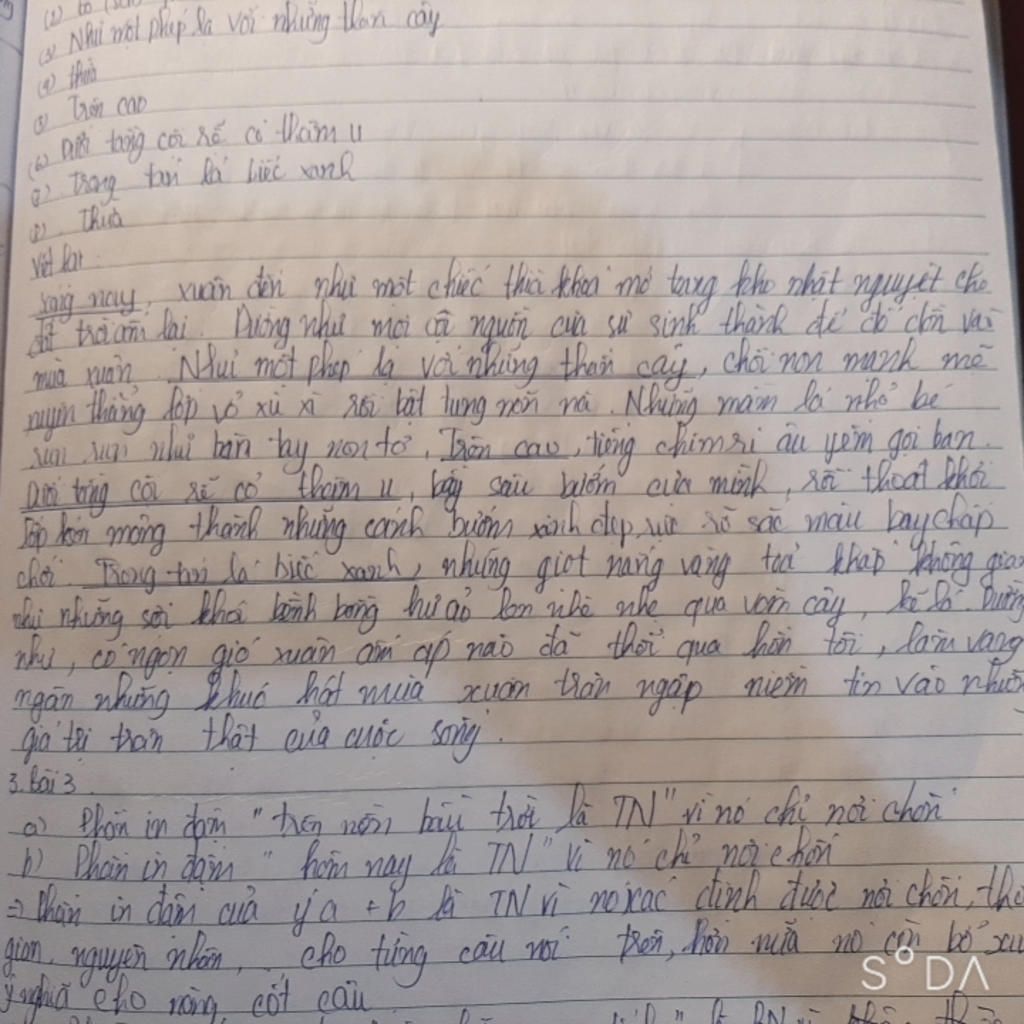 (3) Như một phép lạ với những thân cây
(4) thừa
(5) Trên cao
(6) Dưới tầng cội rễ cổ thâm u
(7) Trong tán lá biếc xanh
(8) Thừa
Viết lại:
Sáng nay, xuân đến như một chiếc thìa khóa mở tung kho nhật nguyệt cho
trời còn lại. Dường như mọi cội nguồn của sự sinh thành để đổ dồn vào
mùa xuân. Như một phép lạ với những thân cây, chồi non mạnh mẽ
thẳng lớp vỏ xù xì rồi bật tung nõn nà. Những mầm lá nhỏ bé
như bàn tay non tơ, Trên cao, tiếng chim ri âu yếm gọi bạn.
Dưới tầng cội rễ cổ thâm u, bầy sâu bướm của mình, rồi thoát khỏi
lớp kén mỏng thành những cánh bướm xinh đẹp, rực rỡ sắc màu bay chấp
chới. Trong tán lá biếc xanh, những giọt nắng vàng toả khắp không gian
như những sợi khói bềnh bồng hư ảo len nhè nhẹ qua vòm cây, kẽ lá. Dường
như, có ngọn gió xuân ấm áp nào đã thổi qua hồn tôi, làm vang
ngân những khúc hát mùa xuân tràn ngập niềm tin vào những
giá trị trân thật của cuộc sống.
3. Bài 3
a) Phần in đậm "trên nền bầu trời là TN" vì nó chỉ nơi chốn
b) Phần in đậm "hôm nay là TN" vì nó chỉ nơi chốn
=> Phần in đậm của ý a + b là TN vì nó xác định được nơi chốn, thời
gian, nguyên nhân, .. cho từng câu nói trên, hơn nữa nó còn bổ
ý nghĩa cho nòng cốt câu
SODA